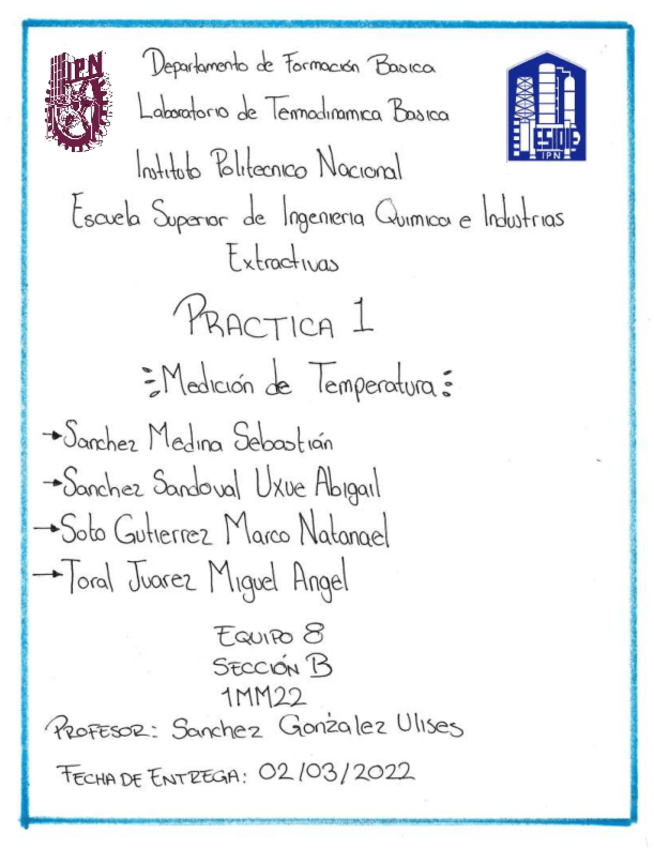 Departamento de Formación Basica
Laboratorio de Termodinamica Basica
Instituto Politecnico Nacional
Escuela Superior de Ingenieria Quimica e Industrias
Extractivas
PRACTICA 1
Medición de Temperatura:
→Sanchez Medina Sebastián
→Sanchez Sandoval Uxue Abigail
→Soto Gutierrez Marco Natanael
→Toral Juarez Miguel Angel
EQUIPO 8
SECCIÓN B
1MM22
PROFESOR: Sanchez Gonzalez Ulises
FECHA DE ENTREGA: 02/03/2022
IPN
ESIQIE
IPN